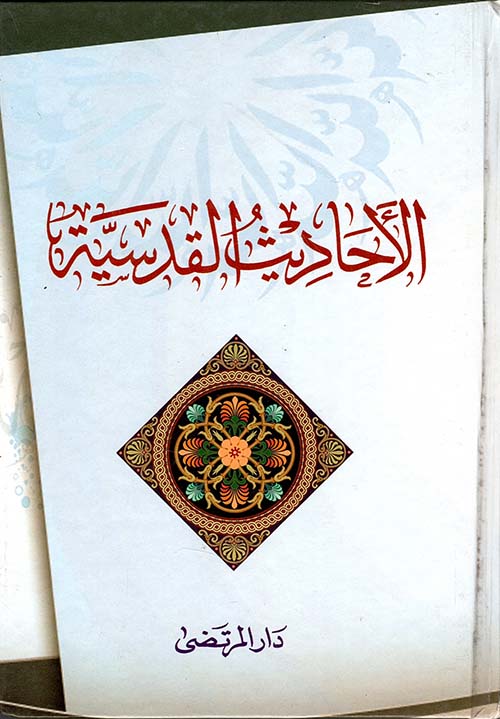 الأحَادِيْثُ القُدسيَّة
دَار المرتَضىٰ